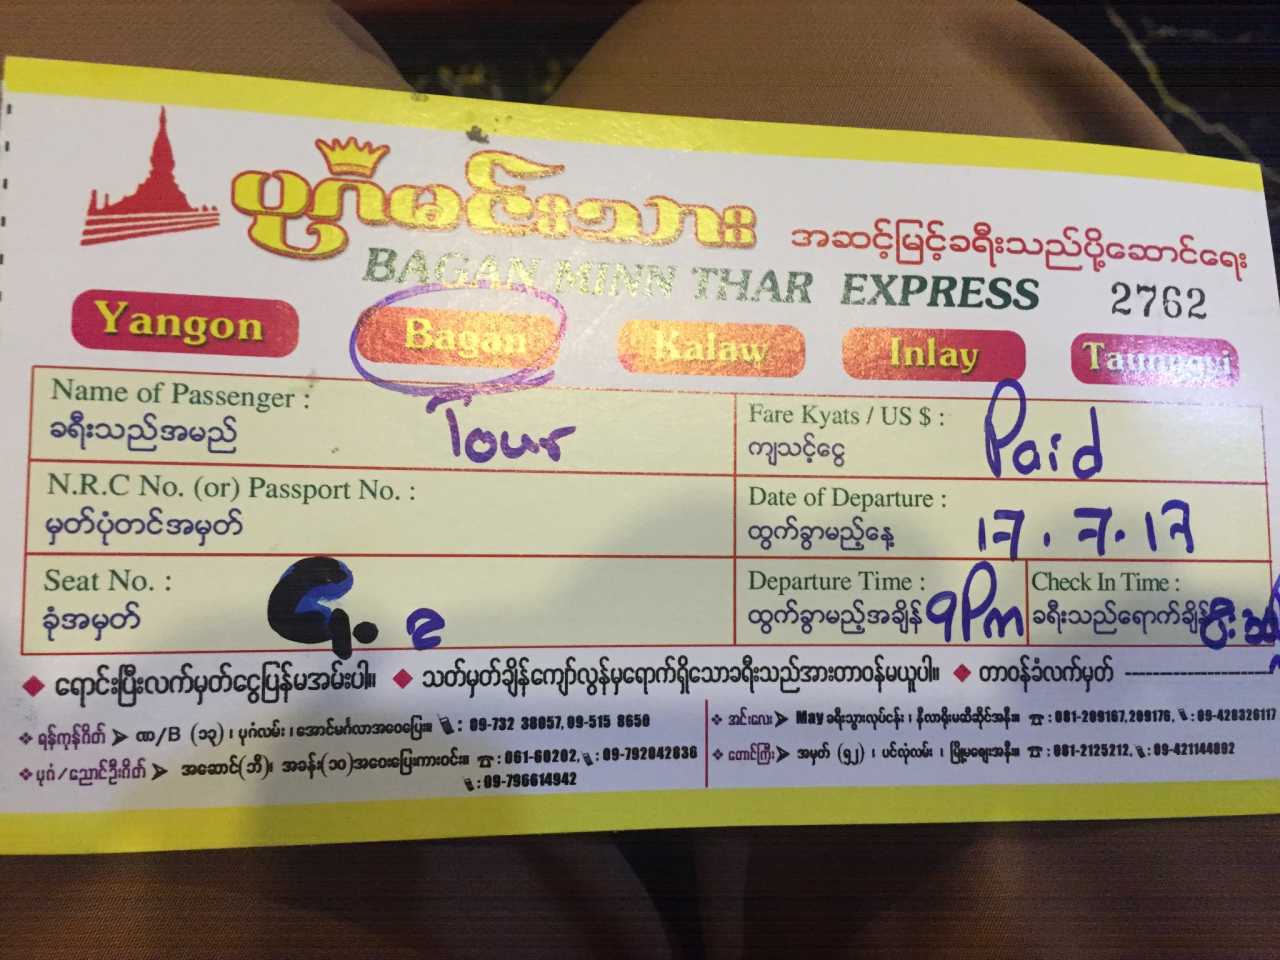 ပုဂံမင်းသား အဆင့်မြင့်ခရီးသည်ပို့ဆောင်ရေး
BAGAN MINN THAR EXPRESS 2762
Yangon Bagan Kalaw Inlay Taunggyi
Name of Passenger : Tour Fare Kyats / US $ : Paid
ခရီးသည်အမည် ကျသင့်ငွေ
N.R.C No. (or) Passport No. : Date of Departure : 17.7.17
မှတ်ပုံတင်အမှတ် ထွက်ခွာမည့်နေ့
Seat No. : Departure Time : 9Pm Check In Time :
ခုံအမှတ် ထွက်ခွာမည့်အချိန် ခရီးသည်ရောက်ချိန်
◆ ရောင်းပြီးလက်မှတ်ငွေပြန်မအမ်းပါ။ ◆ သတ်မှတ်ချိန်ကျော်လွန်မှရောက်ရှိသောခရီးသည်အားတာဝန်မယူပါ။ ◆ တာဝန်ခံလက်မှတ်
ရန်ကုန်ဂိတ် ➤ ဏ/B (၁၃)၊ ပုဂံလမ်း၊ အောင်မင်္ဂလာအဝေးပြေး။ : 09-732 38057, 09-515 8650
ပုဂံ/ညောင်ဦးဂိတ် ➤ အဆောင်(ဘီ)၊ အခန်း(၁၀)အဝေးပြေးကားဝင်း။ : 061-60202, : 09-792042836
: 09-796614942
အင်းလေး ➤ May ခရီးသွားလုပ်ငန်း၊ နီလာရိုးမဆီဆိုင်အနီး။ : 081-209167,209176, : 09-428326117
တောင်ကြီး ➤ အမှတ် (၅၂)၊ ပင်လုံလမ်း၊ မြို့မစျေးအနီး။ : 081-2125212, : 09-421144892